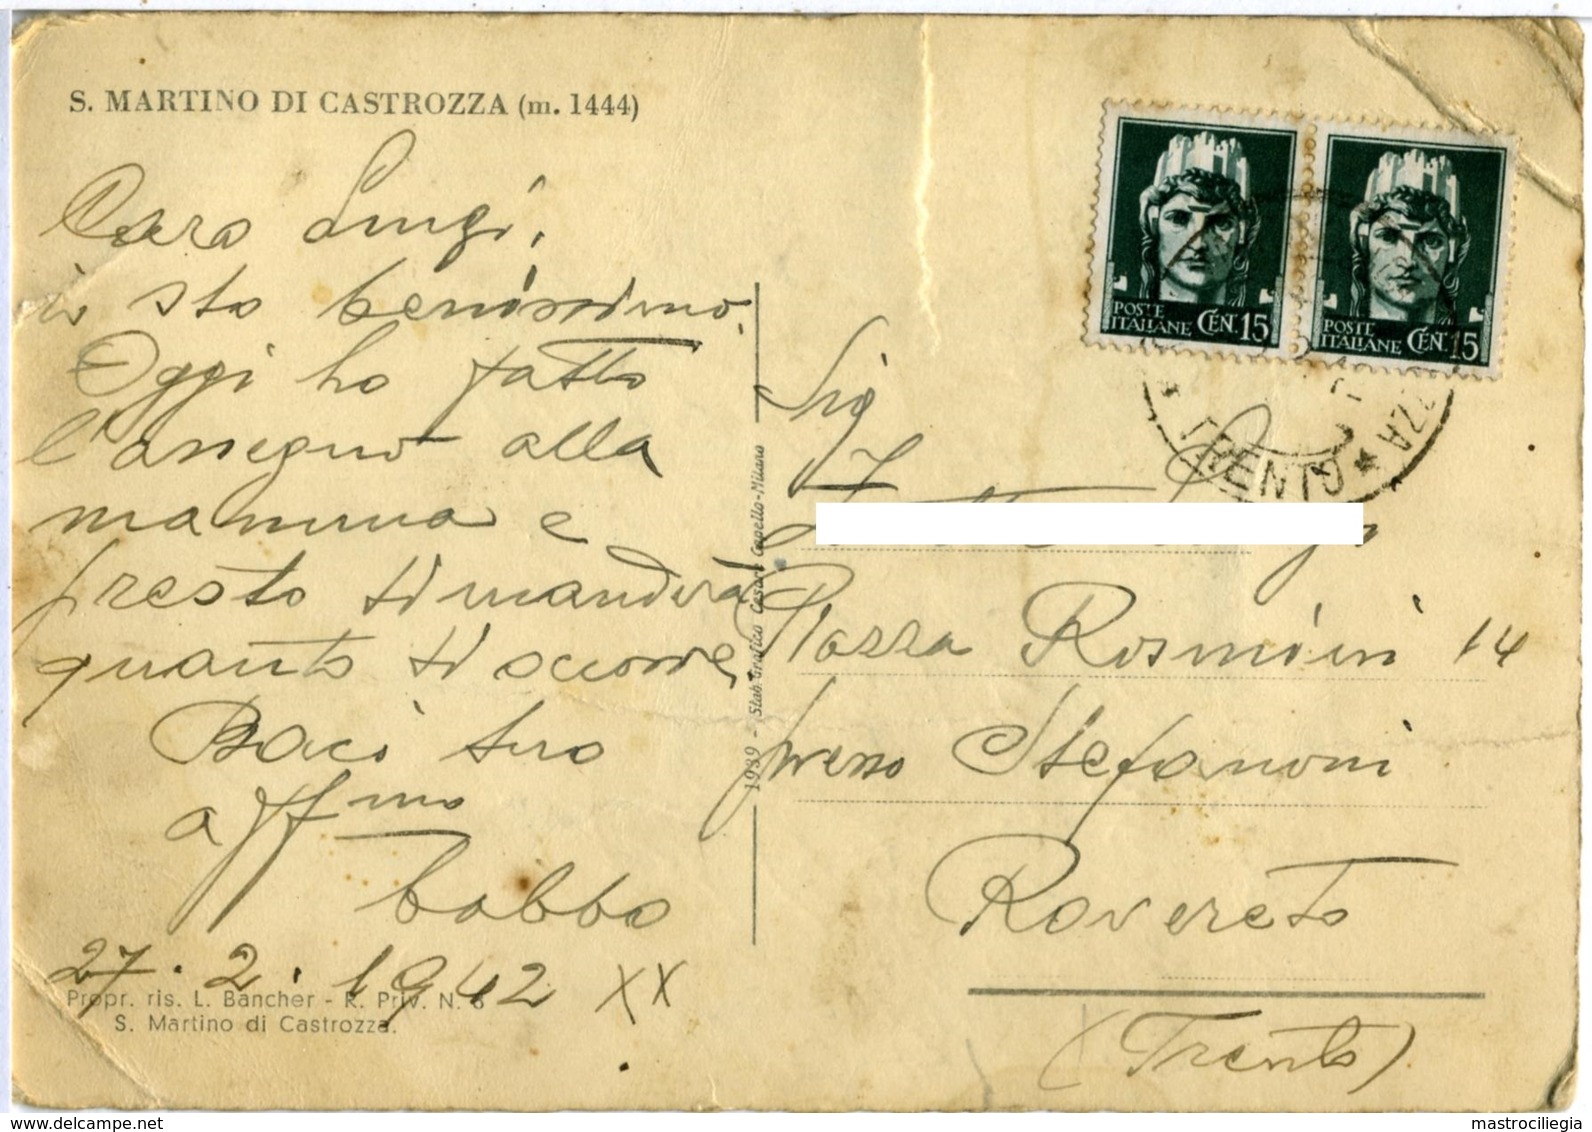 S. MARTINO DI CASTROZZA (m. 1444)
Caro Luigi,
io sto benissimo.
Oggi ho fatto
l'assegno alla
mamma e
presto ti manderà
quanto ti occorre.
Baci tuo
aff.mo
babbo
27.2.1942 XX
Propr. ris. L. Bancher - R. Priv. N. 8
S. Martino di Castrozza.
1939 - Stab. Grafico Cesare Capello-Milano
POSTE ITALIANE CENT. 15
POSTE ITALIANE CENT. 15
* TRENTO *
ZZA
Sig
Piazza Rosmini 14
presso Stefanoni
Rovereto
(Trento)
delcampe.net
mastrociliegia